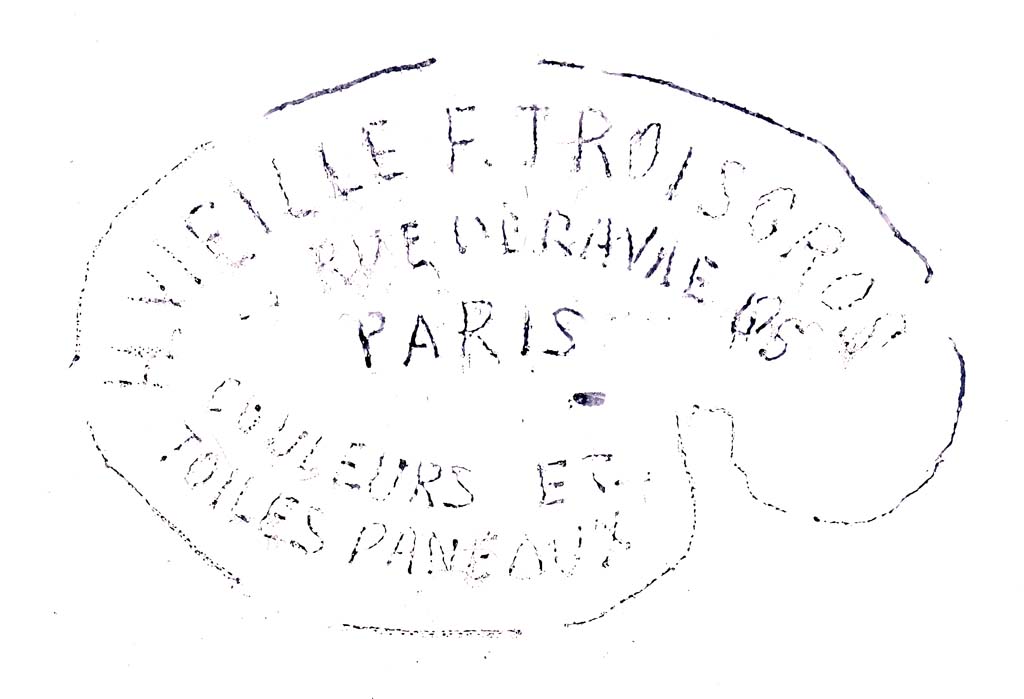 H. VIEILLE F. TROISGROS
RUE DE RAVAE
PARIS
COULEURS ET
TOILES PANEAUX